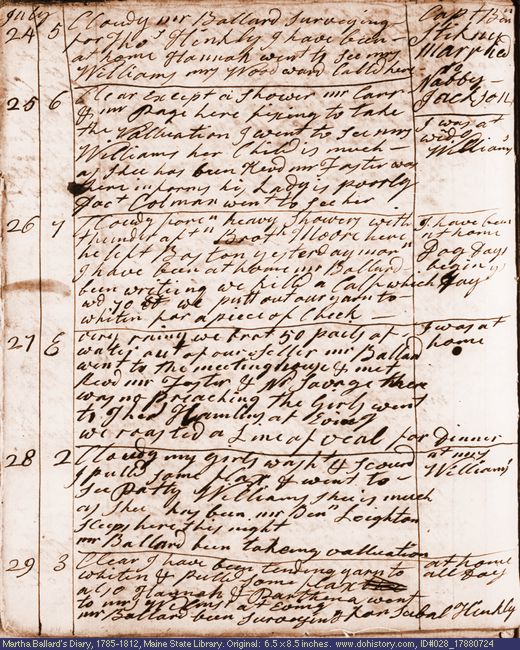 July
24 5 Cloudy mr Ballard Surveying
for Thos Hinkly I have been
at home Hannah went to See mrs
Williams mrs Woodward Calld here
Capt Ben
Stiknee
Marrried
to
Nabby
Jackson
25 6 Clear Except a Shower mr Carr
& mr Page here fixing to take
the Valluation I went to See mrs
Williams her Child is much
as Shee has been Revd mr Foster was
here informs his Lady is poorly
Doct Colman went to See her
I was at
wido
Williams
26 7 Cloudy foren heavy Showers with
thunder aftn Broth Moore here
he left Boston yesterday morn
I have been at home mr Ballard
been writing we killd a Calf which
wd 70 lb we putt out our yarn to
whiten for a piece of Check
I have been
at home
Dog Days
begin
27 E very rainy we brot 50 pails of
water out of our Seller mr Ballard
went to the meeting house & mett
Revd mr Foster & Mr Savage there
was no Preaching the Girls went
to Theos Hamlins at Evng
we roasted a Line of veal for Dinner
I was at
home
28 2 Cloudy my girls washt & Scourd
I pulld Some flax & went to
See Patty Williams Shee is much
as Shee has been mr Benn Leighton
Sleeps here this night
mr Ballard been takeing valluation
at mrs
Williams
29 3 Clear I have been tending yarn to
whiten & pulld Some flax
also Hannah & Parthena went
to mrs Wilms at Evng
mr Ballard been Surveying for Scubal Hinkly
at home
all Day
Martha Ballard's Diary, 1785-1812, Maine State Library. Original: 6.5 x 8.5 inches. www.dohistory.com, ID#028_17880724